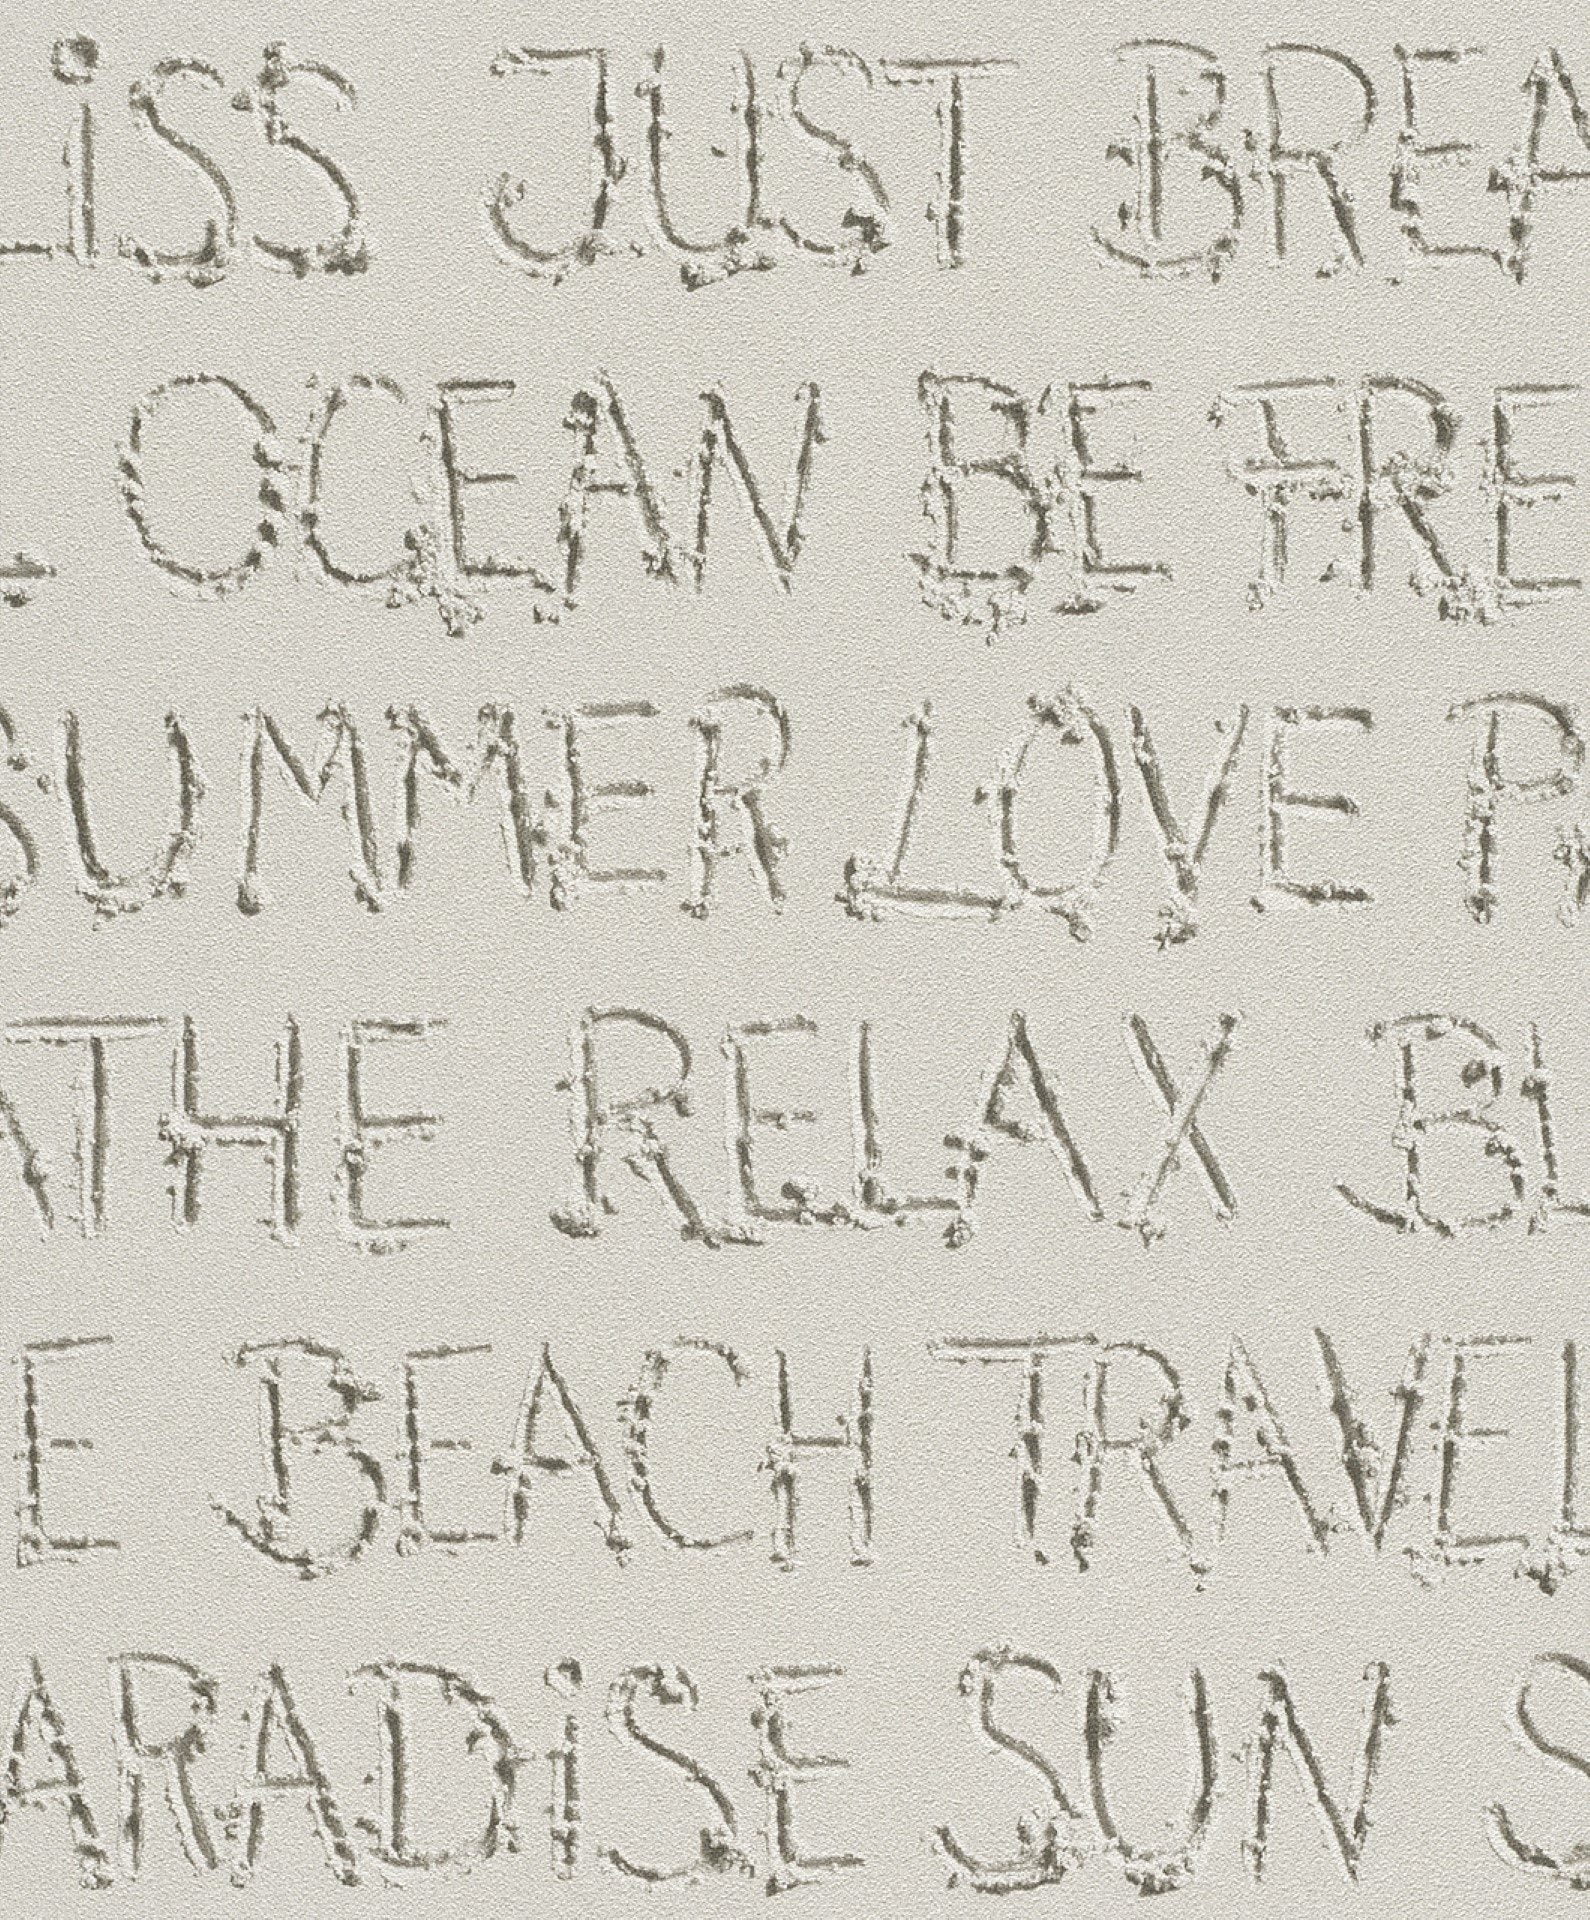 LiSS JUST BREA
L OCEAN BE FREE
SUMMER LOVE P
ATHE RELAX BL
E BEACH TRAVEL
ARADiSE SUN S